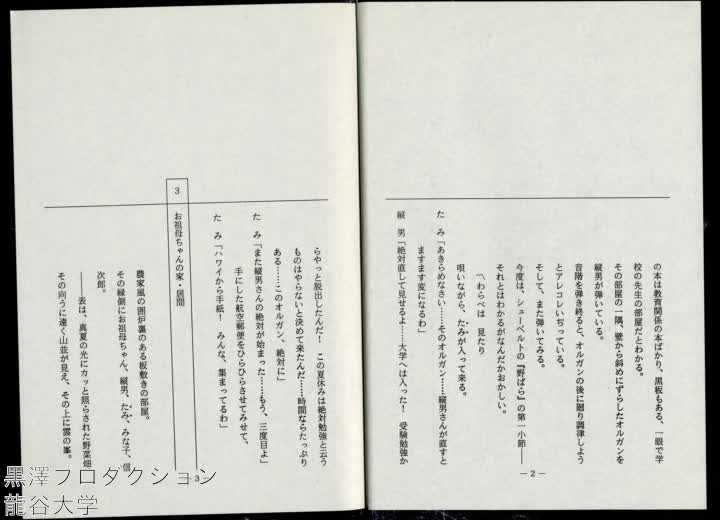 の本は教育関係の本ばかり、黒板もある、一眼で学
校の先生の部屋だとわかる。
その部屋の一隅、壁から斜めにずらしたオルガンを
縦男が弾いている。
音階を弾き終ると、オルガンの後に廻り調律しよう
とアレコレいぢっている。
そして、また弾いてみる。
今度は、シューベルトの『野ばら』の第一小節――
それとはわかるがなんだかおかしい。
〽わらべは 見たり
唄いながら、たみが入って来る。
た み「あきらめなさい……そのオルガン……縦男さんが直すと
ますます変になるわ」
縦 男「絶対直して見せるよ……大学へは入った! 受験勉強か
― 2 ―
らやっと脱出したんだ! この夏休みは絶対勉強と云う
ものはやらないと決めて来たんだ……時間ならたっぷり
ある……このオルガン、絶対に」
た み「また縦男さんの絶対が始まった……もう、三度目よ」
手にした航空郵便をひらひらさせてみせて、
た み「ハワイから手紙! みんな、集まってるわ」
3 お祖母ちゃんの家・居間
農家風の囲炉裏のある板敷きの部屋。
その縁側にお祖母ちゃん、縦男、たみ、みな子、信
次郎。
――表は、真夏の光にカッと照らされた野菜畑
その向うに遠く山並が見え、その上に雲の峯。
― 3 ―
黒澤プロダクション
龍谷大学